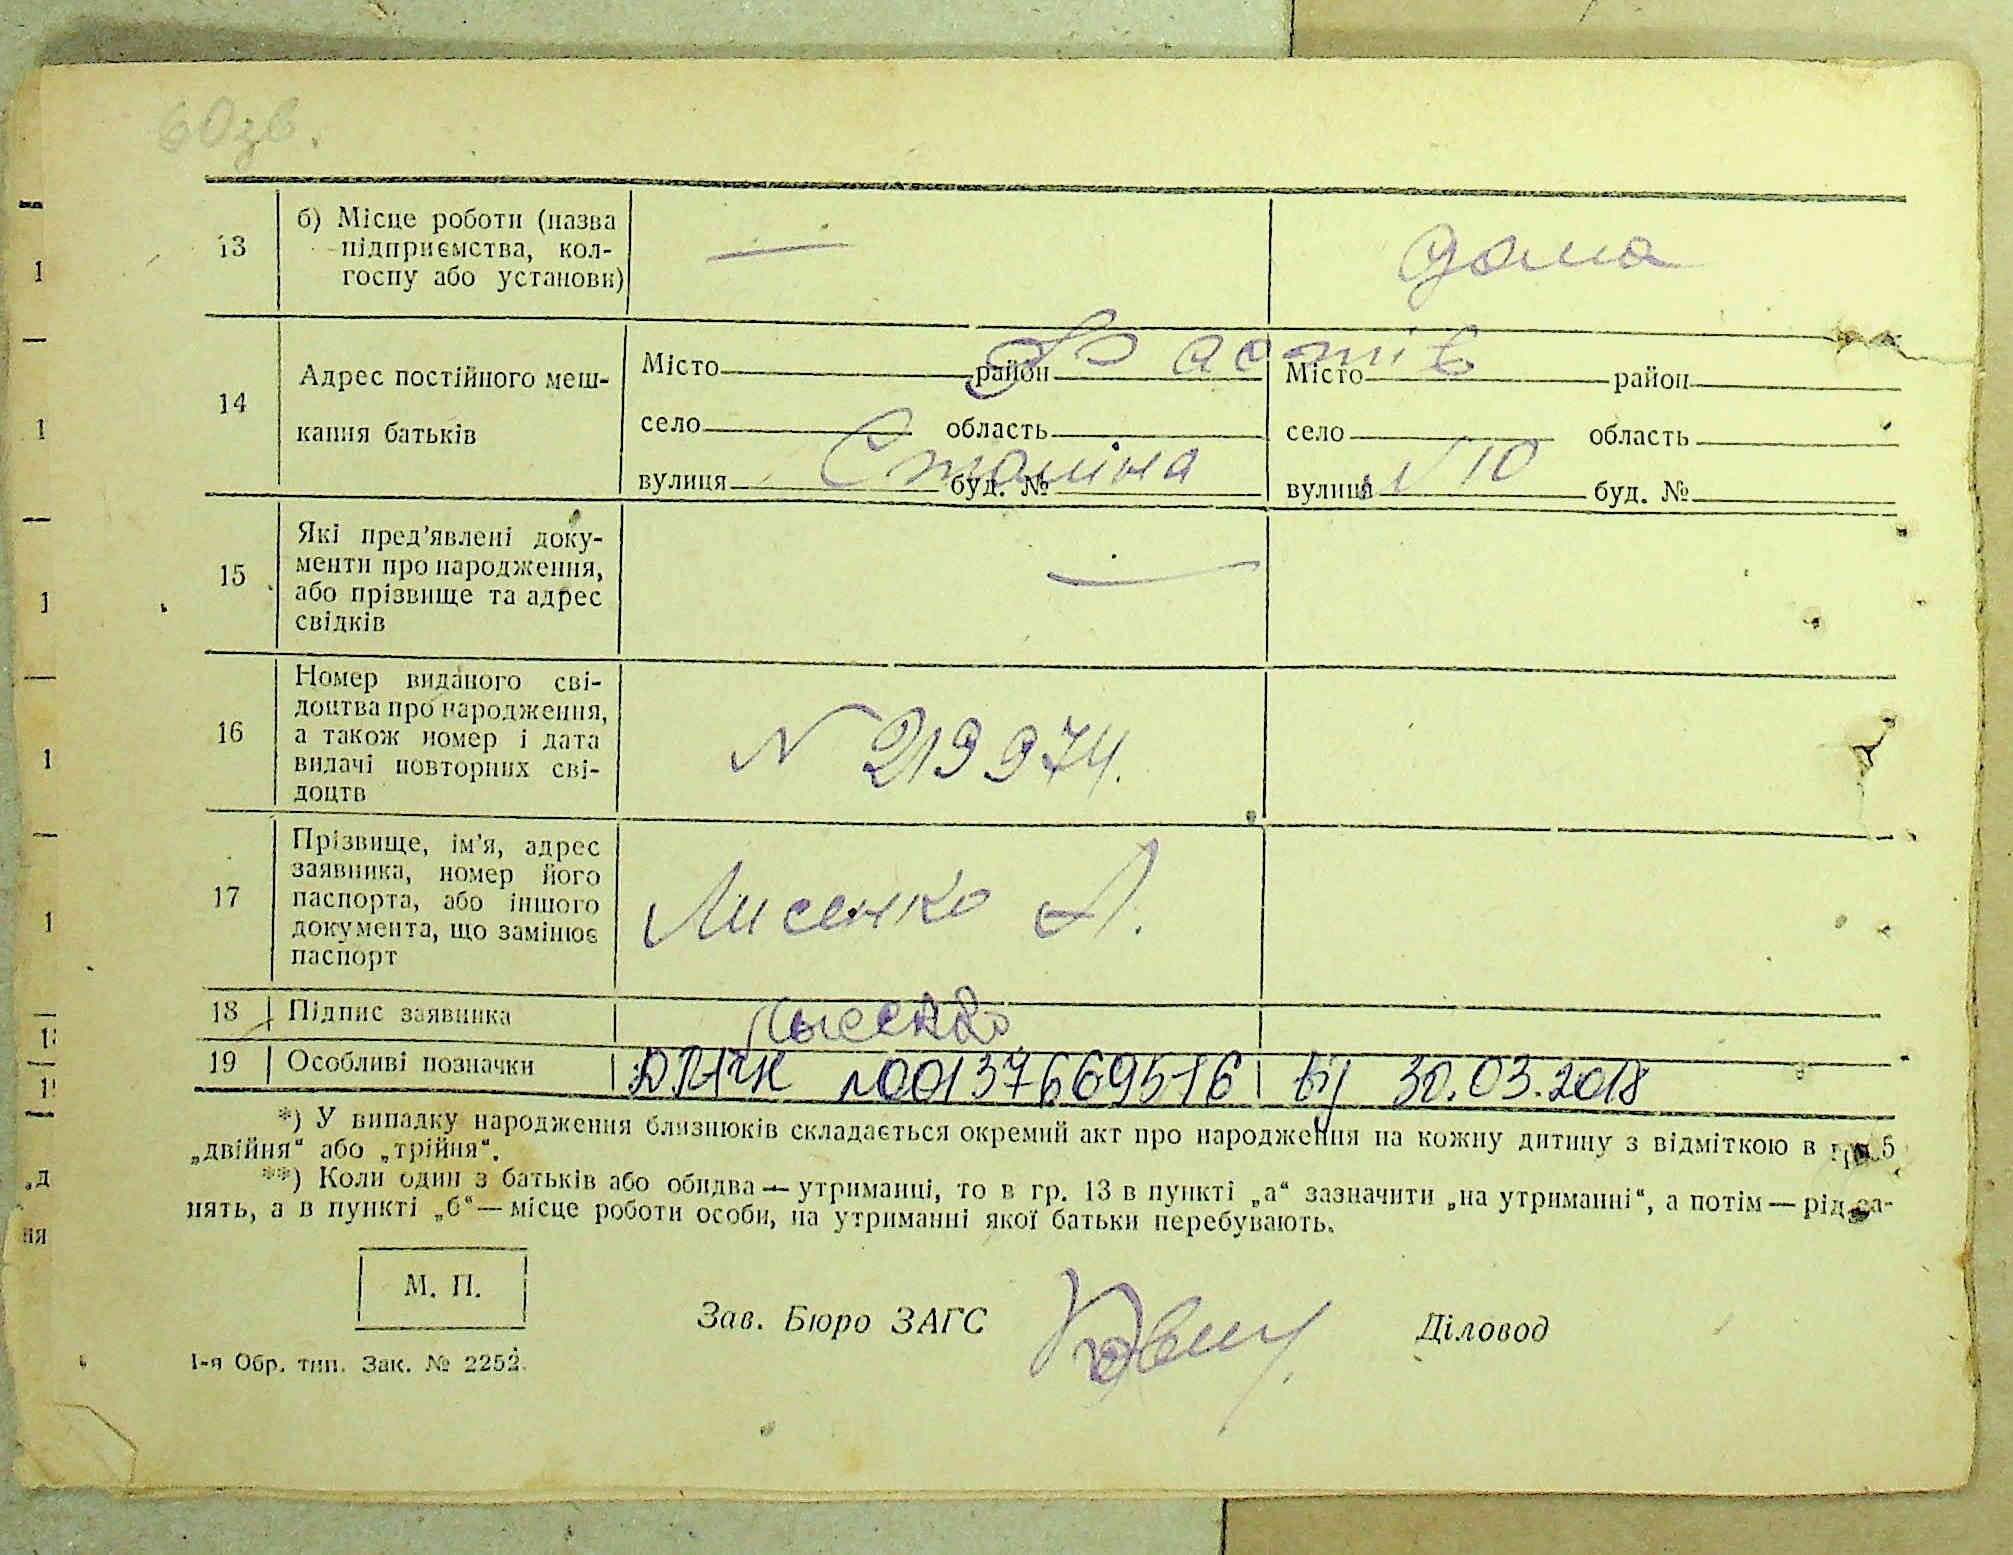 60зв.
13 б) Місце роботи (назва
підприємства, кол-
госпу або установи)
— дома
14 Адрес постійного меш-
кання батьків
Місто район Місто район
Фастів
село область село область
Сталіна № 10
вулиця буд. № вулиця буд. №
15 Які пред'явлені доку-
менти про народження,
або прізвище та адрес
свідків
—
16 Номер виданого сві-
доцтва про народження,
а також номер і дата
видачі повторних сві-
доцтв
N 219974.
17 Прізвище, ім'я, адрес
заявника, номер його
паспорта, або іншого
документа, що замінює
паспорт
Лисенко А.
18 Підпис заявника
19 Особливі позначки
№00137669516 від 30.03.2018
*) У випадку народження близнюків складається окремий акт про народження на кожну дитину з відміткою в гр. 5
„двійня“ або „трійня“.
**) Коли один з батьків або обидва — утриманці, то в гр. 13 в пункті „а“ зазначити „на утриманні“, а потім — рід за-
нять, а в пункті „б“ — місце роботи особи, на утриманні якої батьки перебувають.
М. П.
Зав. Бюро ЗАГС Діловод
1-я Обр. тип. Зак. № 2252.